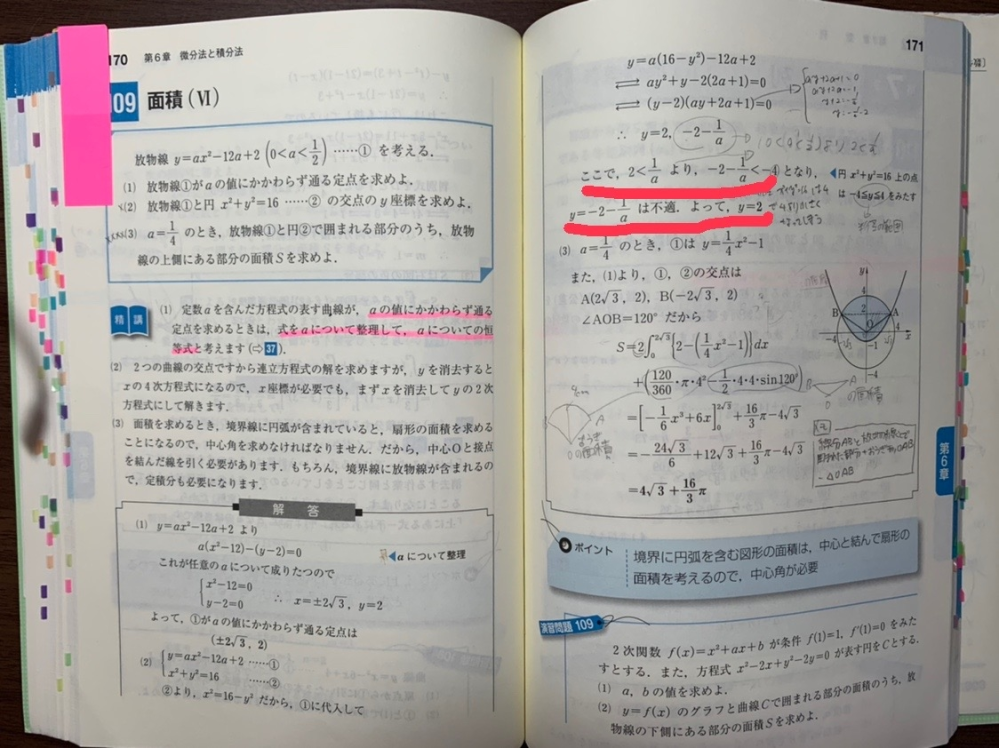 170 第6章 微分法と積分法
109 面積(Ⅵ)
放物線 y=ax²-12a+2 (0<a<1/2) ……① を考える.
(1) 放物線①がaの値にかかわらず通る定点を求めよ.
(2) 放物線①と円 x²+y²=16 ……② の交点のy座標を求めよ.
(3) a=1/4 のとき, 放物線①と円②で囲まれる部分のうち, 放物
線の上側にある部分の面積Sを求めよ.
精講
(1) 定数aを含んだ方程式の表す曲線が, aの値にかかわらず通る
定点を求めるときは, 式をaについて整理して, aについての恒
等式と考えます(⇨37).
(2) 2つの曲線の交点ですから連立方程式の解を求めますが, yを消去すると
xの4次方程式になるので, x座標が必要でも, まずxを消去してyの2次
方程式にして解きます.
(3) 面積を求めるとき, 境界線に円弧が含まれていると, 扇形の面積を求める
ことになるので, 中心角を求めなければなりません. だから, 中心Oと接点
を結んだ線を引く必要があります. もちろん, 境界線に放物線が含まれるの
で, 定積分も必要になります.
解答
(1) y=ax²-12a+2 より
a(x²-12)-(y-2)=0
◀aについて整理
これが任意のaについて成りたつので
{x²-12=0
y-2=0 ∴ x=±2√3, y=2
よって, ①がaの値にかかわらず通る定点は
(±2√3, 2)
(2) {y=ax²-12a+2 ……①
x²+y²=16 ……②
②より, x²=16-y² だから, ①に代入して
171
y=a(16-y²)-12a+2
⇄ ay²+y-2(2a+1)=0
⇄ (y-2)(ay+2a+1)=0
∴ y=2, -2-1/a
ここで, 2<1/a より, -2-1/a<-4 となり,
◀円 x²+y²=16 上の点
は -4≦y≦4 をみたす
y=-2-1/a は不適. よって, y=2
(3) a=1/4 のとき, ①は y=1/4x²-1
また, (1)より, ①, ②の交点は
A(2√3, 2), B(-2√3, 2)
∠AOB=120° だから
S=2∫₀^{2√3}{2-(1/4x²-1)}dx
+(120/360・π・4²-1/2・4・4・sin120°)
=[-1/6x³+6x]₀^{2√3}+16/3π-4√3
=-24√3/6+12√3+16/3π-4√3
=4√3+16/3π
y
4
B 2 A
-4 O 4 x
-1
-4
第6章
ポイント
境界に円弧を含む図形の面積は, 中心と結んで扇形の
面積を考えるので, 中心角が必要
演習問題 109
2次関数 f(x)=x²+ax+b が条件 f(1)=1, f'(1)=0 をみた
すとする. また, 方程式 x²-2x+y²-2y=0 が表す円をCとする.
(1) a, bの値を求めよ.
(2) y=f(x) のグラフと曲線Cで囲まれる部分の面積のうち, 放
物線の下側にある部分の面積Sを求めよ.